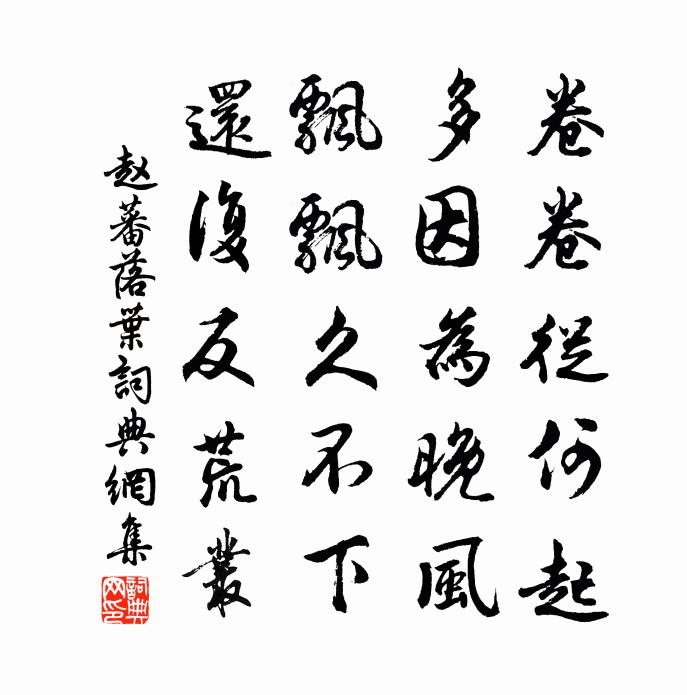 卷卷從何起
多因為晚風
飄飄久不下
還復反荒叢
赵蕃落葉詞典網集
詞典网印